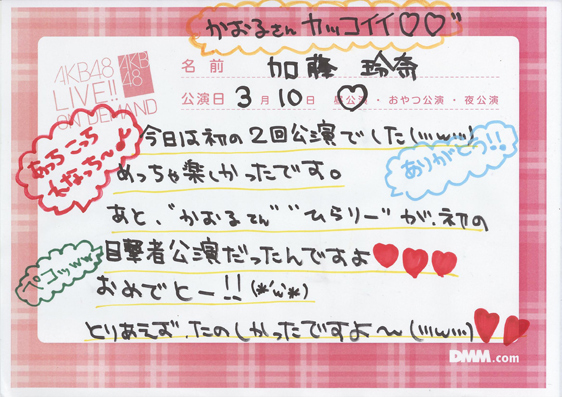 かおるさん カッコイイ♡♡"
AKB48
LIVE!!
ON DEMAND
AKB
48
名前 加藤 玲奈
公演日 3月10日 昼公演・おやつ公演・夜公演
あっちこっち
れなっち〜♪
今日は初の2回公演でした(///w///)
ありがとう!!
めっちゃ楽しかったです。
あと、"かおるさん""ひらりー"が、初の
目撃者公演だったんですよ♥♥♥
ペコッww
おめでとー!!(*'w'*)
とりあえず、たのしかったですよ〜(///w///)♥♥
DMM.com